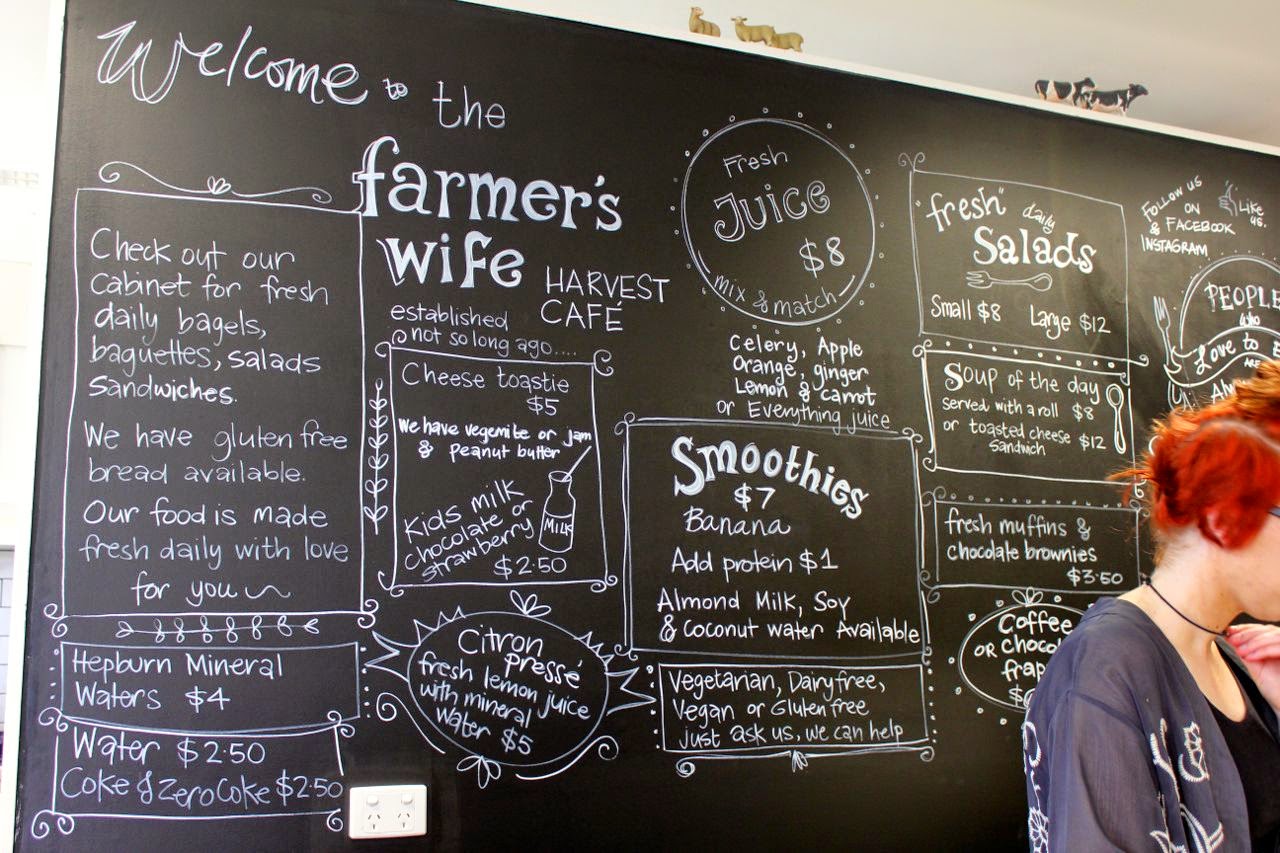 Welcome to the
farmer's
wife HARVEST
CAFÉ
established
not so long ago....
Check out our
cabinet for fresh
daily bagels,
baguettes, salads
sandwiches.
We have gluten free
bread available.
Our food is made
fresh daily with love
for you
Hepburn Mineral
Waters $4
Water $2.50
Coke & Zero Coke $2.50
Cheese toastie
$5
We have vegemite or jam
& peanut butter
Kids milk
chocolate or
strawberry
$2.50
MILK
Citron
Pressé
fresh lemon juice
with mineral
water $5
Fresh
Juice
$8
mix & match
Celery, Apple
Orange, ginger
Lemon & carrot
or Everything juice
Smoothies
$7
Banana
Add protein $1
Almond Milk, Soy
& Coconut water Available
Vegetarian, Dairy free,
Vegan or Gluten free
just ask us, we can help
"fresh" daily
Salads
Small $8 Large $12
Soup of the day
served with a roll $8
or toasted cheese $12
sandwich
fresh muffins &
chocolate brownies
$3.50
Coffee
OR
Follow us
on
& FACEBOOK
INSTAGRAM
Like
us.
PEOPLE
who
Love to
ARE